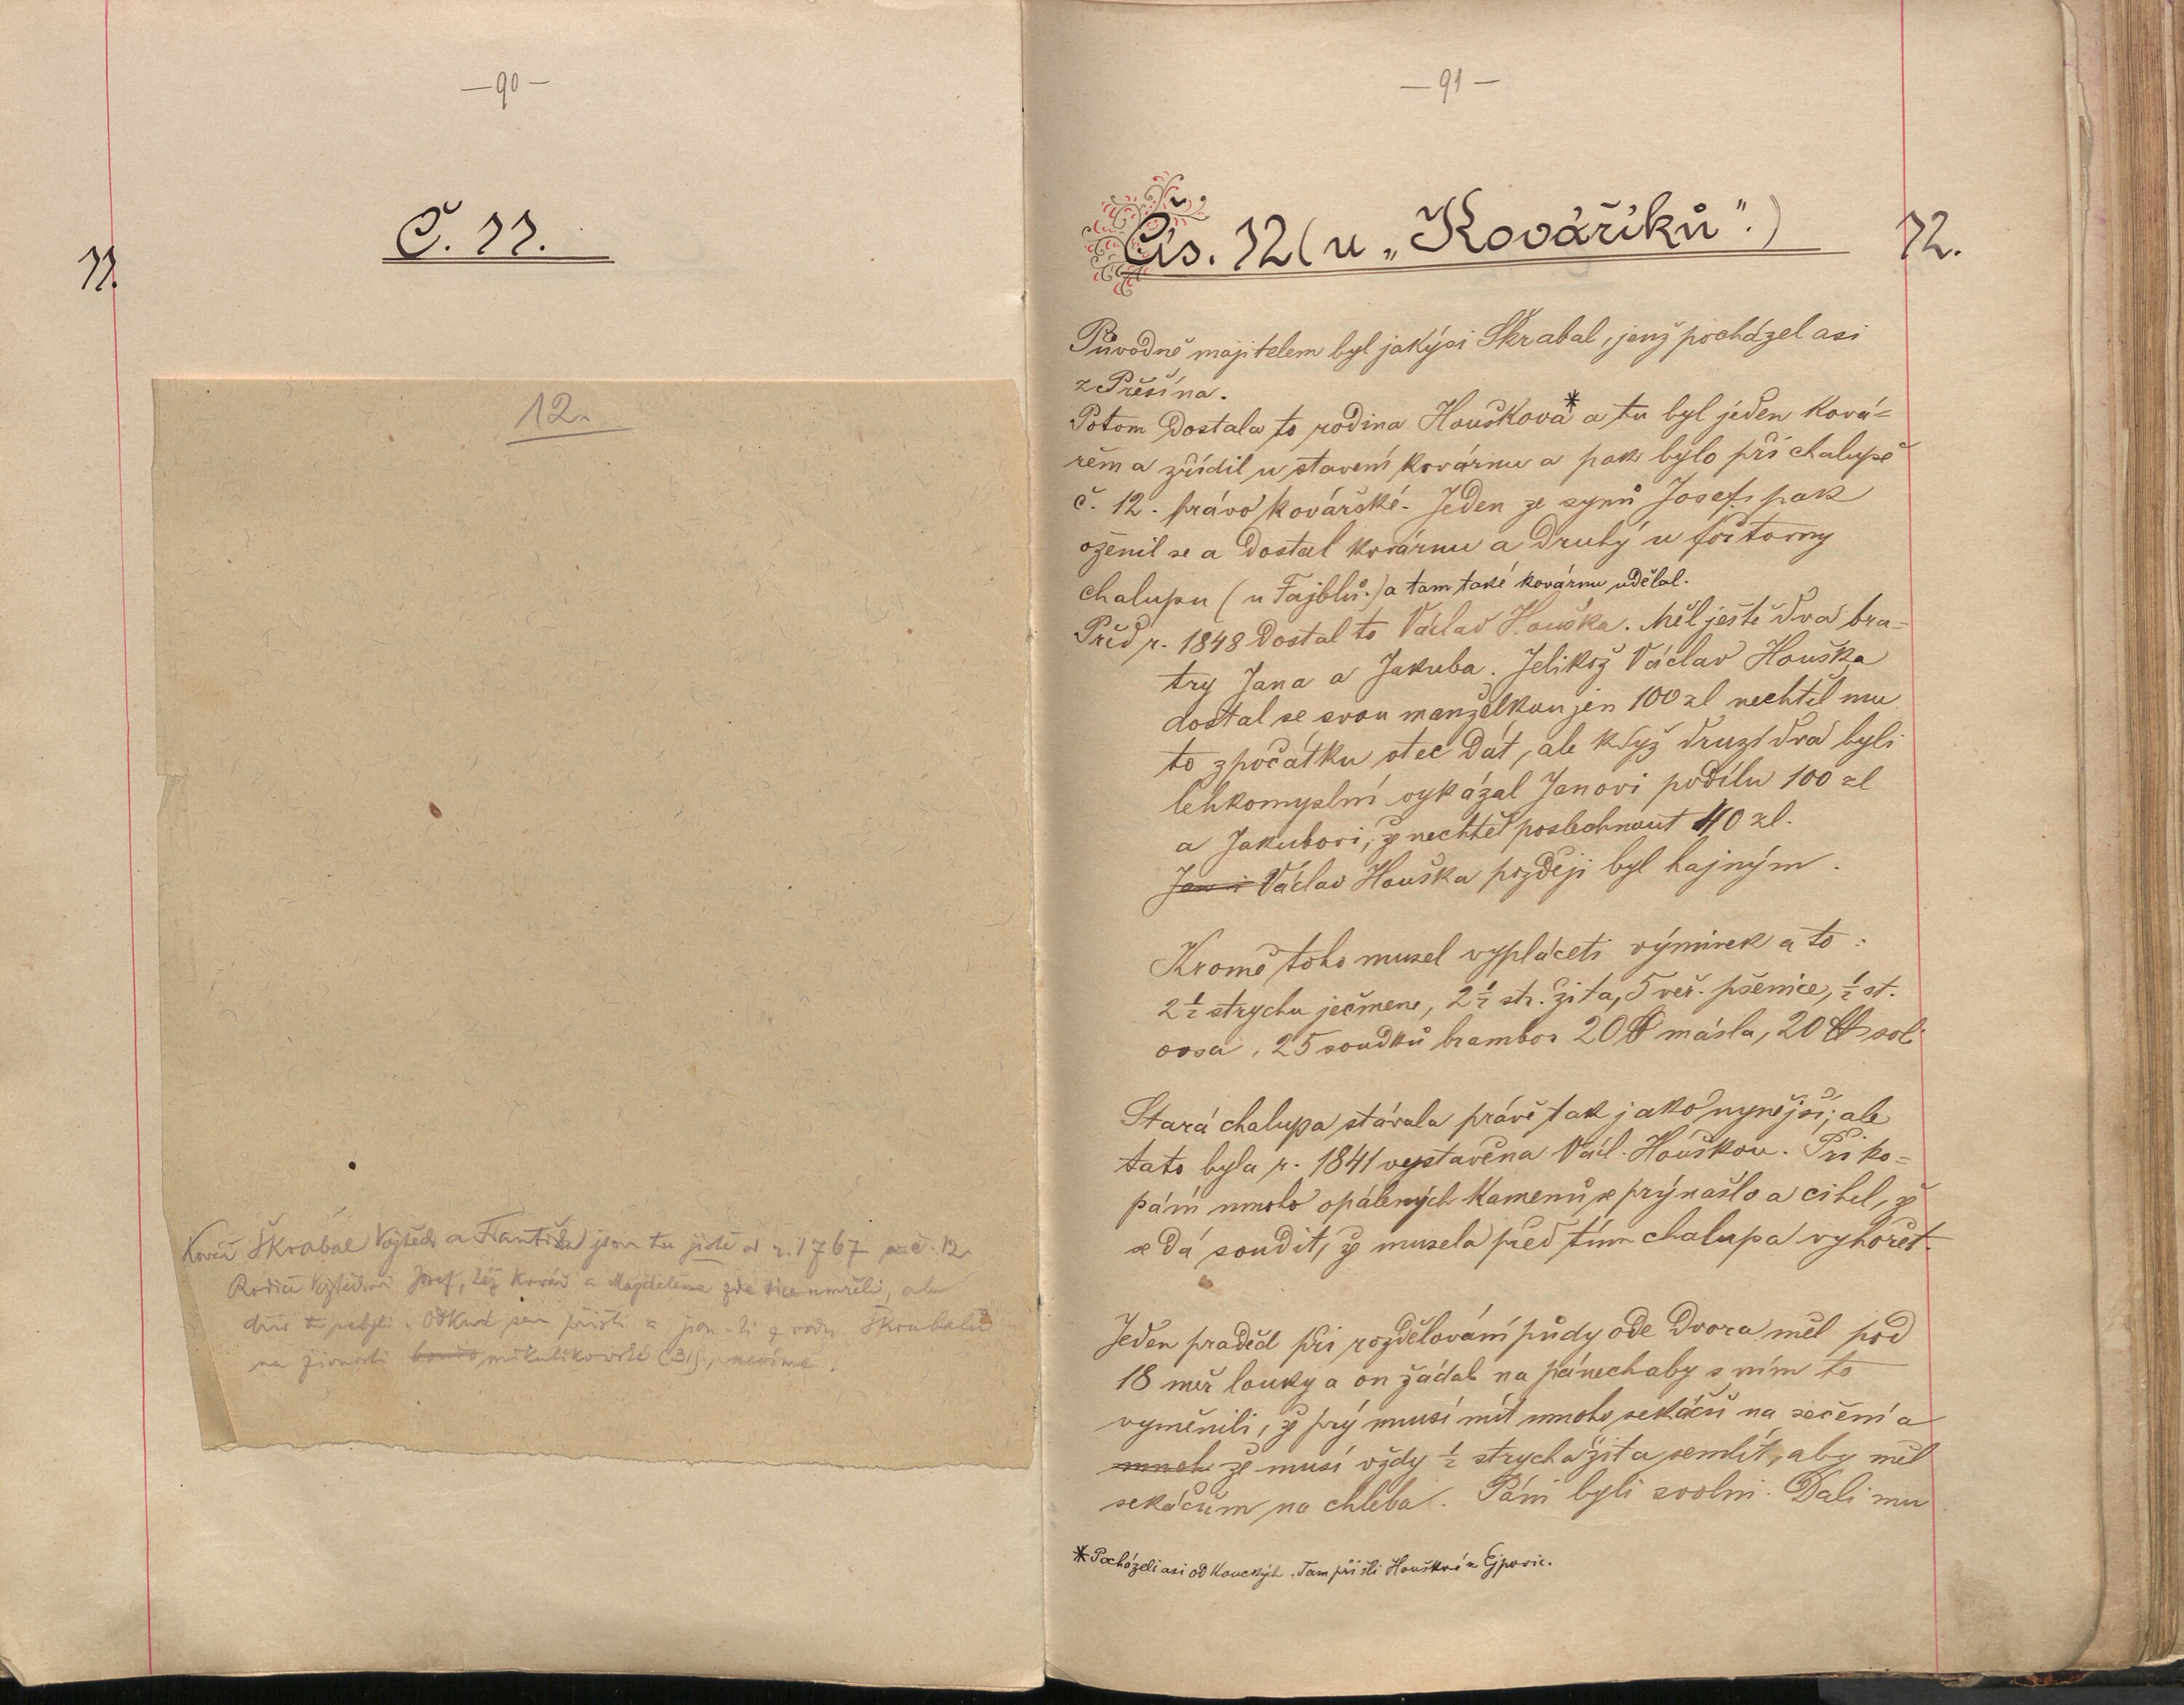 — 90 —
Č. 11.
11.
12.
Kovář Škrabal Vojtěch a Františka jsou tu jistě od r. 1767 č. 12.
Rodiče Vojtěchovi Josef, též kovář a Magdalena zde sice umřeli, ale
dřív tu nebyli. Odkud sem přišli a jsou-li z rodu Škrabalů
na živnosti mikulíkovské (31), nevíme.
— 91 —
Čís. 12 (u „Kováříků".)
12.
Původně majitelem byl jakýsi Škrabal, jenž pocházel asi
z Přešína.
Potom dostala to rodina Houškova* a tu byl jeden ková-
řem a zřídil u stavení kovárnu a pak bylo při chalupě
č. 12. právo kovářské. Jeden ze synů Josef pak
oženil se a dostal kovárnu a druhý u foštovny
chalupu (u Fajblů.) a tam také kovárnu udělal.
Před r. 1848 dostal to Václav Houška. Měl ještě dva bra-
try Jana a Jakuba. Jelikož Václav Houška
dostal se svou manželkou jen 100 zl nechtěl mu
to zpočátku otec dát, ale když druzí dva byli
lehkomyslní vykázal Janovi podílu 100 zl
a Jakubovi, že nechtěl poslechnout 40 zl.
Jan i Václav Houška později byl hajným.
Kromě toho musel vypláceti výminek a to:
2 ½ strychu ječmene, 2 ½ str. žita, 5 věr. pšenice, ½ st.
ovsa, 25 soudků brambor 20 ℔ másla, 20 ℔ soli
Stará chalupa stávala právě tak jako nynější; ale
tato byla r. 1841 vystavěna Václ. Houškou. Při ko-
pání mnoho opálených kamenů se prý našlo a cihel, že
se dá soudit, že musela před tím chalupa vyhořet.
Jeden praděd při rozdělování půdy ode dvora měl pod
18 měr louky a on žádal na pánech aby s ním to
vyměnili, že prý musí mít mnoho sekáčů na sečení a
mnoh že musí vždy ½ strycha žita semlít, aby měl
sekáčům na chleba. Páni byli svolni. Dali mu
* Pocházeli asi od Kouckých. Tam přišli Houškové z Ejpovic.